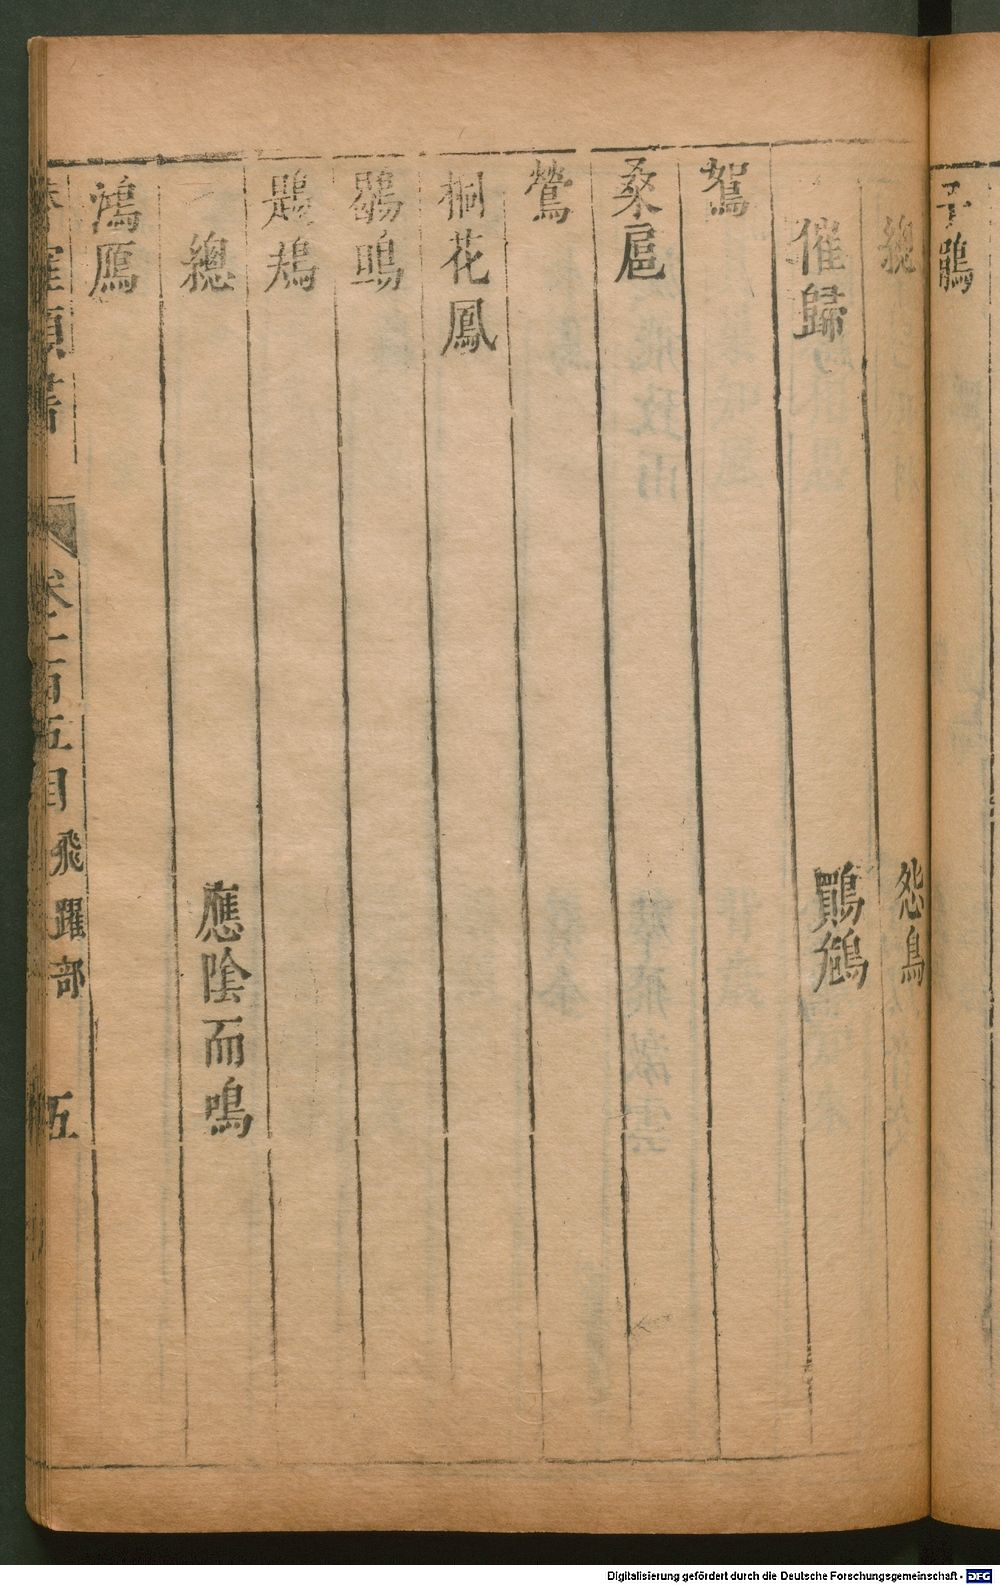 子鵑
總 怨鳥
催歸 鷶
鴽
桒扈
鶯
桐花鳳
鶡鴠
鶗鴂
總 應陰而鳴
鴻鴈
潛確類書 卷一百五目 飛躍部 五
Digitalisierung gefördert durch die Deutsche Forschungsgemeinschaft - DFG